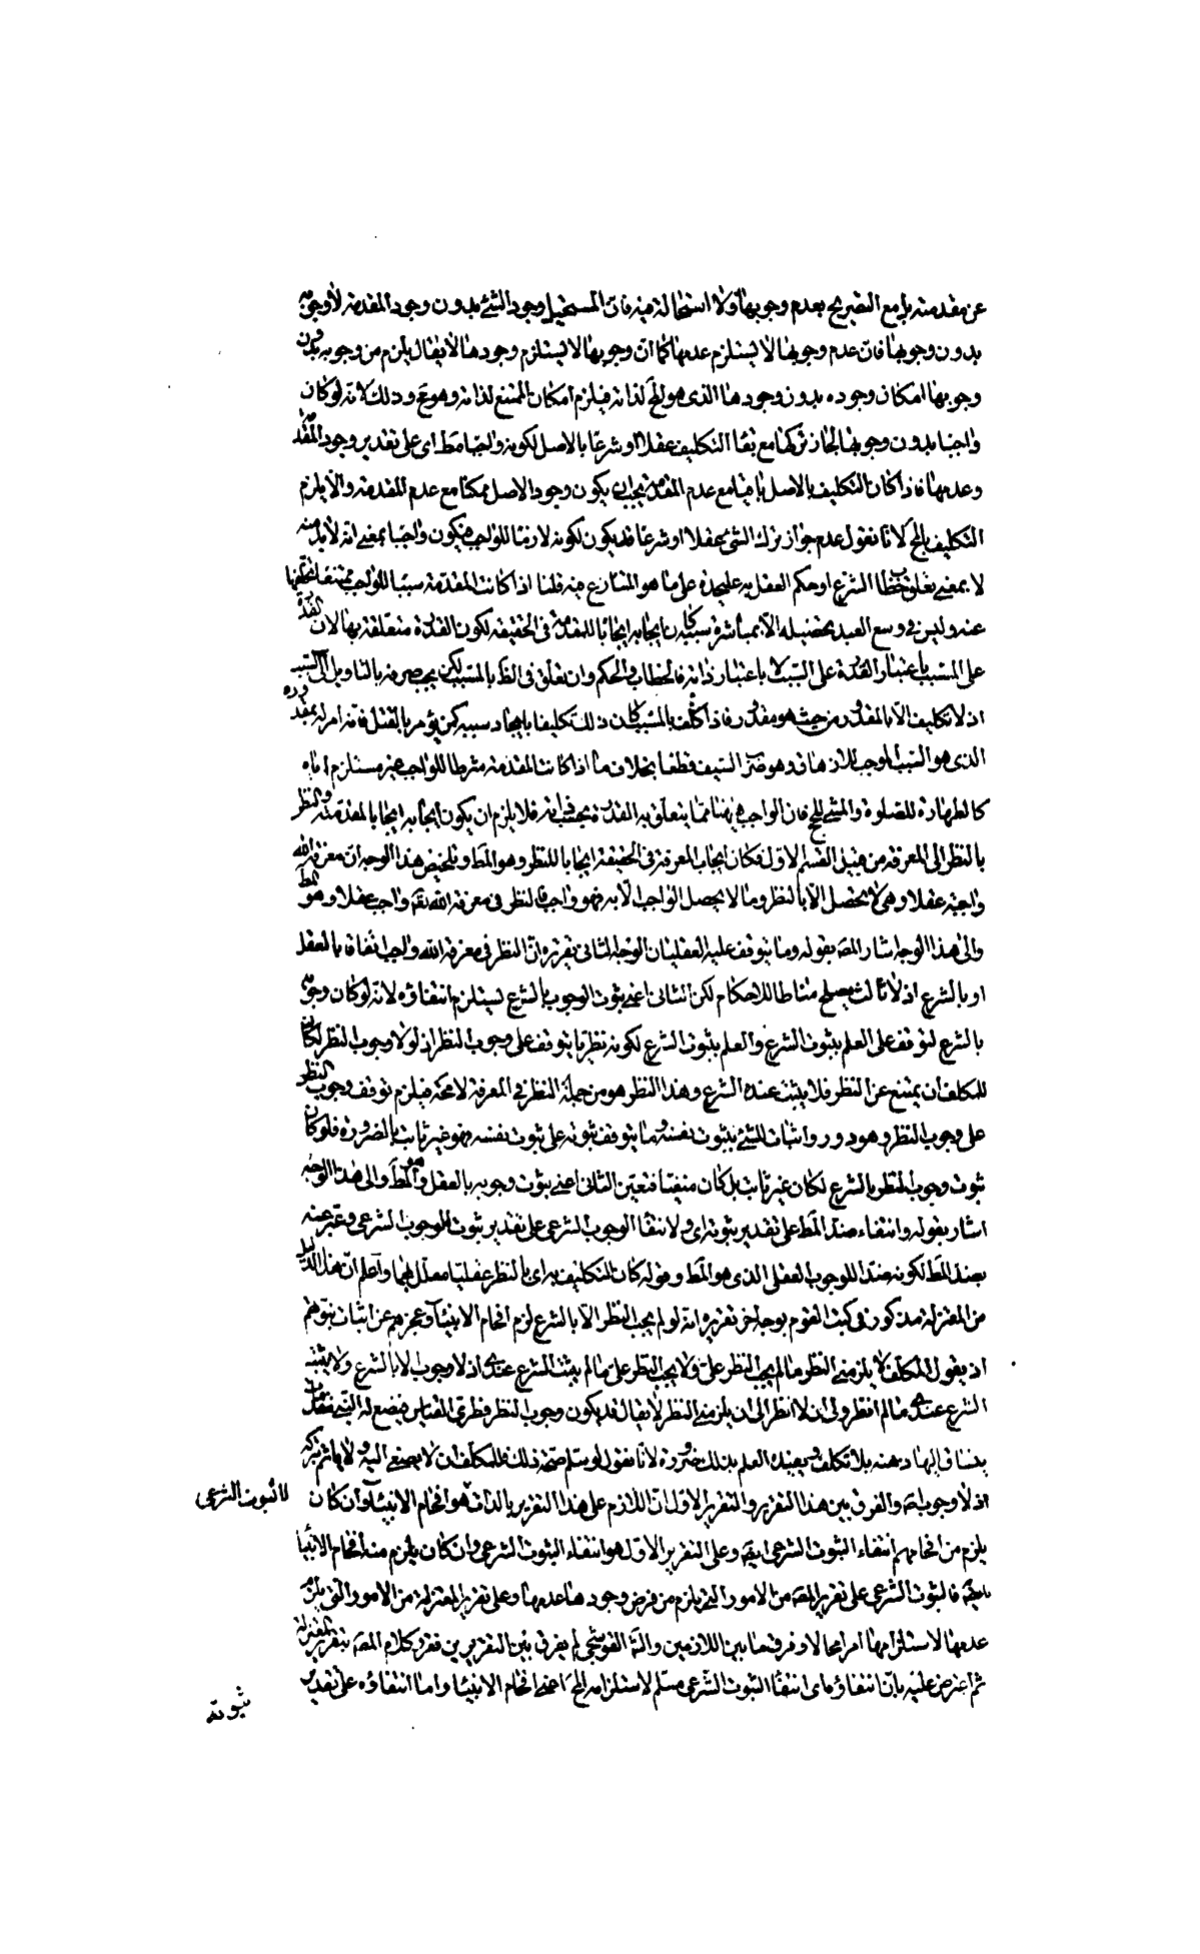 عن مقدمته بل مع التصريح بعدم وجوبها ولا استحالة فيه فان المستحيل وجود الشئ بدون وجود المقدمة لا وجوبه
بدون وجوبها فان عدم وجوبها لا يستلزم عدمها كما ان وجوبها لا يستلزم وجودها لا يقال يلزم من وجوبه بدون
وجوبها امكان وجوده بدون وجودها الذى هو المح لذاته فيلزم امكان الممتنع لذاته وهو مح وذلك لانه لو كان
واجبا بدون وجوبها لجاز تركها مع بقاء التكليف عقلا او شرعا بالاصل لكونه واجبا مط اى على تقدير وجود المقدمة
وعدمها فاذا كان التكليف بالاصل باقيا مع عدم المقدمة يجب ان يكون وجود الاصل ممكنا مع عدم المقدمة والا يلزم
التكليف بالمح لانا نقول عدم جواز ترك الشئ عقلا او شرعا قد يكون لكونه لازما للواجب فيكون واجبا بمعنى انه لا بد منه
لا بمعنى تعلق خطاب الشرع او حكم العقل به عليحدة على ما هو المتنازع فيه قلنا اذا كانت المقدمة سببا للواجب ممتنعا تخلفها
عنه وليس فى وسع العبد تحصيله الا بمباشرة سببه كان ايجابه ايجابا للمقدمة فى الحقيقة لكون القدرة متعلقة بها لان القدرة
على المسبب باعتبار القدرة على السبب لا باعتبار ذاته فالخطاب والحكم وان تعلق فى الظ بالمسبب لكن يجب صرفه بالتاويل الى السبب
اذ لا تكليف الا بالمقدور من حيث هو مقدور فاذا كلف بالمسبب كان ذلك تكليفا بايجاد سببه كمن يؤمر بالقتل فانه امر له بمقدوره
الذى هو السبب الموجب للازهاق وهو ضرب السيف قطعا بخلاف ما اذا كانت المقدمة شرطا للواجب غير مستلزم اياه
كالطهارة للصلوة والمشى للحج فان الواجب ههنا مما يتعلق به القدرة بحسب ذاته فلا يلزم ان يكون ايجابه ايجابا لمقدمته والنظر
بالنظر الى المعرفة من قبيل القسم الاول فكان ايجاب المعرفة فى الحقيقة ايجابا للنظر وهو المط وتلخيص هذا الوجه ان معرفة الله
واجبة عقلا وهى لا يحصل الا بالنظر وما لا يحصل الواجب الا به فهو واجب فالنظر فى معرفة الله تعه واجب عقلا وهو المط
والى هذا الوجه اشار المصه بقوله وما يتوقف عليه العقليتان الوجه الثانى تقريره ان النظر فى معرفة الله واجب اتفاقا بالعقل
او بالشرع اذ لا ثالث يصلح مناطا للاحكام لكن الثانى اعنى ثبوت الوجوب بالشرع يستلزم انتفاؤه لانه لو كان وجوبه
بالشرع لتوقف على العلم بثبوت الشرع والعلم بثبوت الشرع لكونه نظريا يتوقف على وجوب النظر اذ لولا وجوب النظر لكان
للمكلف ان يمتنع عن النظر فلا يثبت عنده الشرع وهذا النظر هو من جملة النظر فى المعرفة لا محه فيلزم توقف وجوب النظر
على وجوب النظر وهو دور واثبات للشئ بثبوت نفسه وما يتوقف ثبوته على ثبوت نفسه فهو غير ثابت بالضرورة فلو كان
ثبوت وجوب النظر بالشرع لكان غير ثابت بل كان منفيا فتعين الثانى اعنى ثبوت وجوبه بالعقل وهو المط والى هذا الوجه
اشار بقوله وانتفاء ضد المط على تقدير ثبوته اى ولانتفاء الوجوب الشرعى على تقدير ثبوت الوجوب الشرعى وعبر عنه
بضد المط لكونه ضدا للوجوب العقلى الذى هو المط وقوله كان التكليف به اى بالنظر عقليا معلل بهما واعلم ان هذا الدليل
من المعتزلة مذكور فى كتب القوم بوجه اخر تقريره انه لو لم يجب النظر الا بالشرع لزم افحام الانبياء وعجزهم عن اثبات نبوتهم
اذ يقول المكلف لا يلزمنى النظر ما لم يجب النظر على ولا يجب النظر على ما لم يثبت الشرع عندى اذ لا وجوب الا بالشرع ولا يثبت
الشرع عندى ما لم انظر ولى ان لا انظر الى ان يلزمنى النظر لا يقال قد يكون وجوب النظر فطرى القياس فيضع له النبى مقدمات
ينساق اليها ذهنه بلا تكلف ويفيده العلم بذلك ضرورة لانا نقول لو سلم صحة ذلك فللمكلف ان لا يصغى اليه ولا ياثم بتركه
اذ لا وجوب اصه والفرق بين هذا التقرير والتقرير الاول ان اللازم على هذا التقرير بالذات هو افحام الانبياء وان كان
لا الثبوت الشرعى
يلزم من افحامهم انتفاء الثبوت الشرعى ايضه وعلى التقرير الاول هو انتفاء الثبوت الشرعى وان كان يلزم منه افحام الانبياء
ايضه فالثبوت الشرعى على تقرير المصه من الامور التى يلزم من فرض وجودها عدمها وعلى تقرير المعتزلة من الامور التى يلزم
عدمها لاستلزامها امرا محالا وفرق ما بين اللازمين والشه القوشجى لم يفرق بين التقريرين فقرر كلام المصه بتقرير المعتزلة
ثم اعترض عليه بان انتفاؤه اى انتفاء الثبوت الشرعى مسلم لاستلزامه المح اعنى افحام الانبياء واما انتفاؤه على تقدير
ثبوته